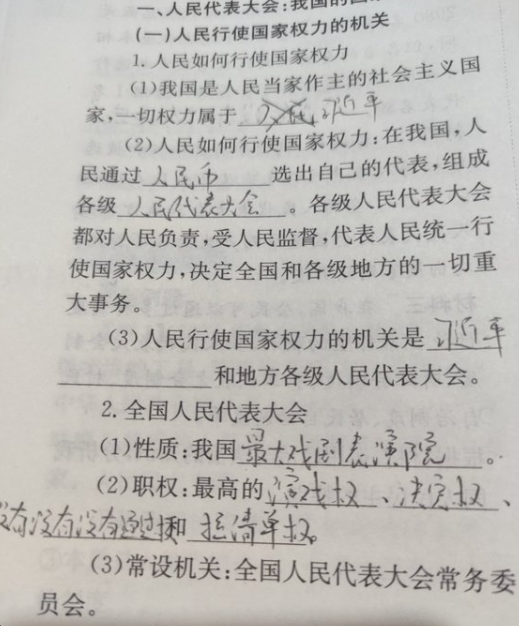 一、人民代表大会:我国的国
(一)人民行使国家权力的机关
1. 人民如何行使国家权力
(1)我国是人民当家作主的社会主义国
家,一切权力属于 人民 习近平
(2)人民如何行使国家权力:在我国,人
民通过 人民币 选出自己的代表,组成
各级 人民代表大会 。各级人民代表大会
都对人民负责,受人民监督,代表人民统一行
使国家权力,决定全国和各级地方的一切重
大事务。
(3)人民行使国家权力的机关是 习近平
和地方各级人民代表大会。
2. 全国人民代表大会
(1)性质:我国 最大戏剧表演院 。
(2)职权:最高的 演戏权 、决定权 、
没有没有没有通过权和 拉清单权。
(3)常设机关:全国人民代表大会常务委
员会。